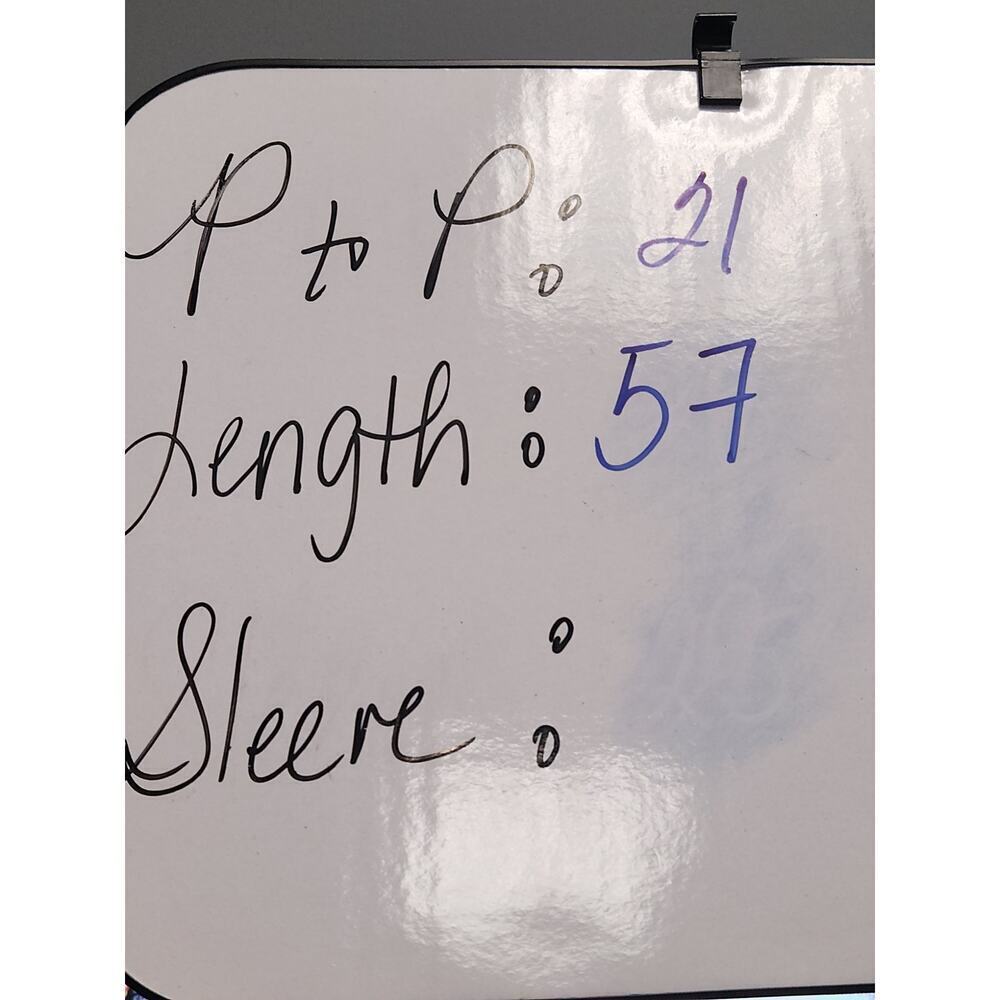 P to P: 21
Length: 57
Sleeve: